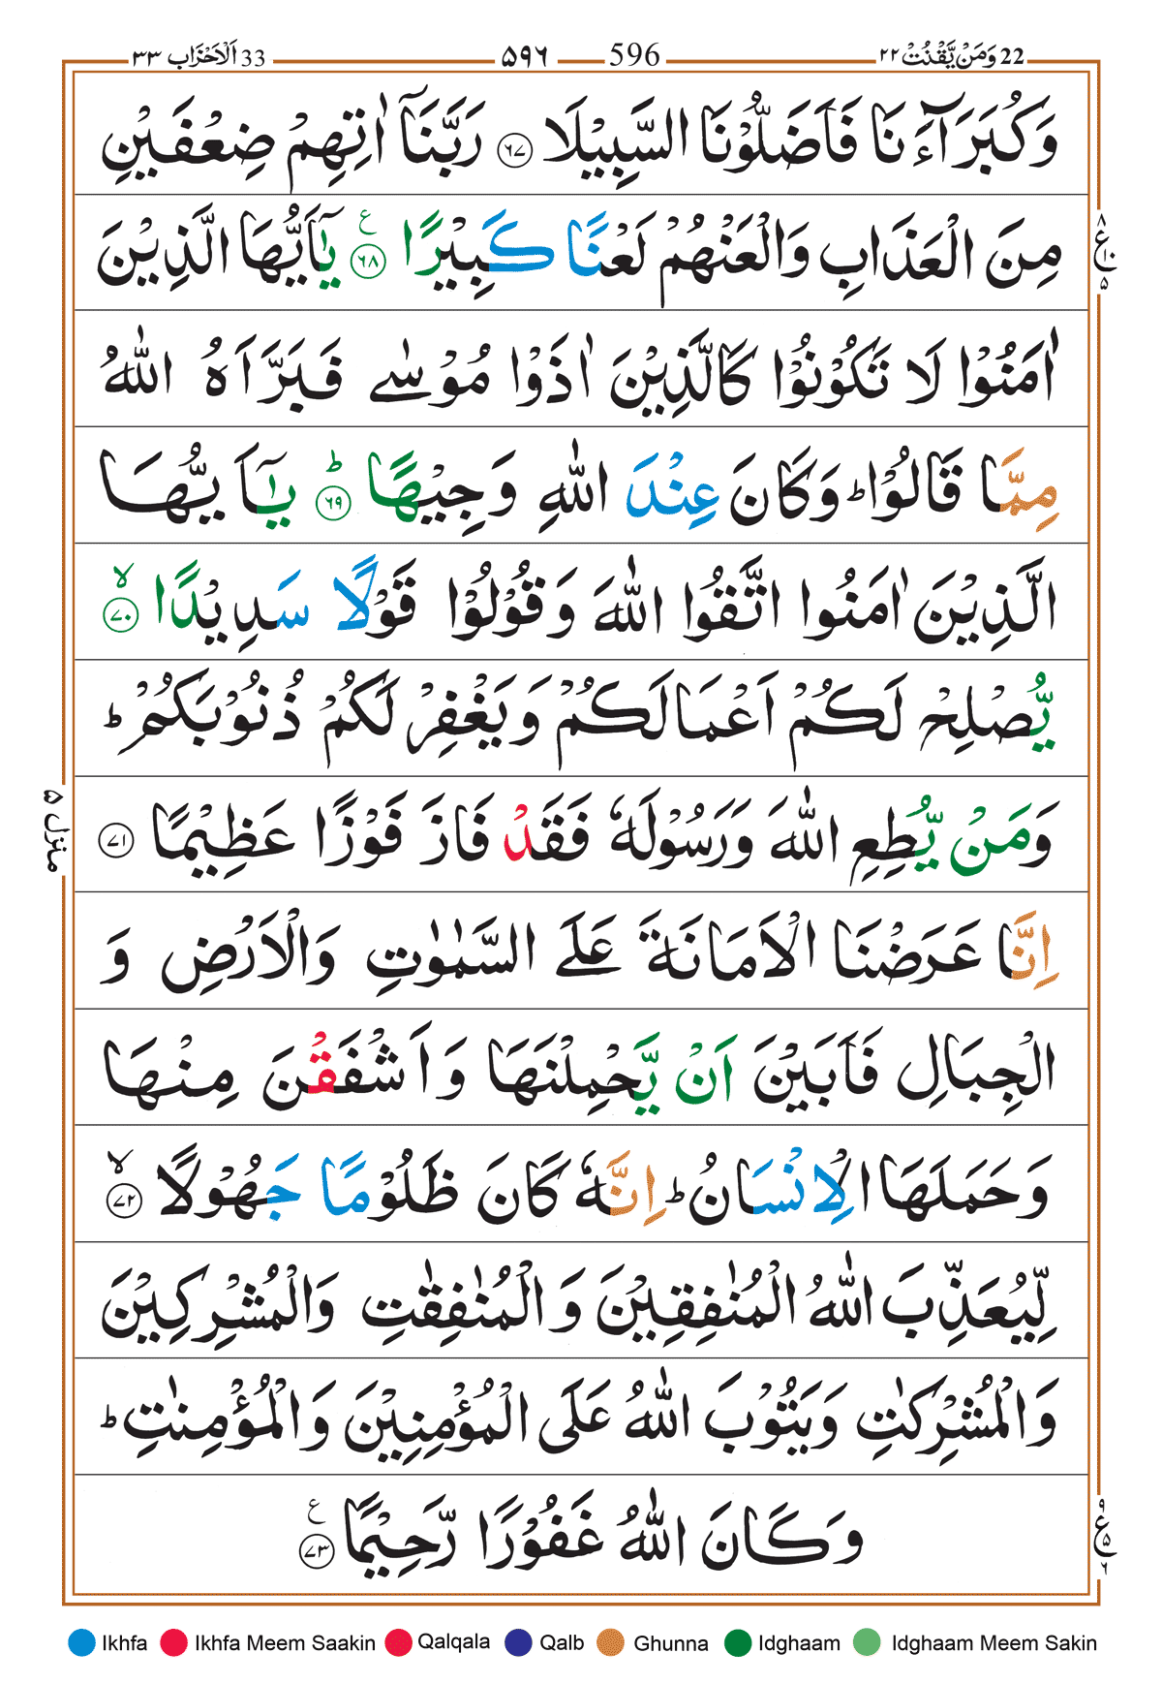 22 وَمَنْ يَّقْنُتْ ٢٢ 596 ۵۹۶ 33 اَلْاَحْزَاب ٣٣
وَكُبَرَآءَنَا فَاَضَلُّوْنَا السَّبِيْلَا ۶۷ رَبَّنَآ اٰتِهِمْ ضِعْفَيْنِ
مِنَ الْعَذَابِ وَالْعَنْهُمْ لَعْنًا كَبِيْرًا ع ۶۸ يٰۤاَيُّهَا الَّذِيْنَ
اٰمَنُوْا لَا تَكُوْنُوْا كَالَّذِيْنَ اٰذَوْا مُوْسٰى فَبَرَّاَهُ اللّٰهُ
مِمَّا قَالُوْا ؕ وَكَانَ عِنْدَ اللّٰهِ وَجِيْهًا ؕ ۶۹ يٰۤاَ يُّهَا
الَّذِيْنَ اٰمَنُوا اتَّقُوا اللّٰهَ وَقُوْلُوْا قَوْلًا سَدِيْدًا ۙ ۷۰
يُّصْلِحْ لَكُمْ اَعْمَالَكُمْ وَيَغْفِرْ لَكُمْ ذُنُوْبَكُمْ ؕ
وَمَنْ يُّطِعِ اللّٰهَ وَرَسُوْلَهٗ فَقَدْ فَازَ فَوْزًا عَظِيْمًا ۷۱
اِنَّا عَرَضْنَا الْاَمَانَةَ عَلَى السَّمٰوٰتِ وَالْاَرْضِ وَ
الْجِبَالِ فَاَبَيْنَ اَنْ يَّحْمِلْنَهَا وَاَشْفَقْنَ مِنْهَا
وَحَمَلَهَا الْاِنْسَانُ ؕ اِنَّهٗ كَانَ ظَلُوْمًا جَهُوْلًا ۙ ۷۲
لِّيُعَذِّبَ اللّٰهُ الْمُنٰفِقِيْنَ وَالْمُنٰفِقٰتِ وَالْمُشْرِكِيْنَ
وَالْمُشْرِكٰتِ وَيَتُوْبَ اللّٰهُ عَلَى الْمُؤْمِنِيْنَ وَالْمُؤْمِنٰتِ ؕ
وَكَانَ اللّٰهُ غَفُوْرًا رَّحِيْمًا ع ۷۳
منزل ۵
Ikhfa Ikhfa Meem Saakin Qalqala Qalb Ghunna Idghaam Idghaam Meem Sakin